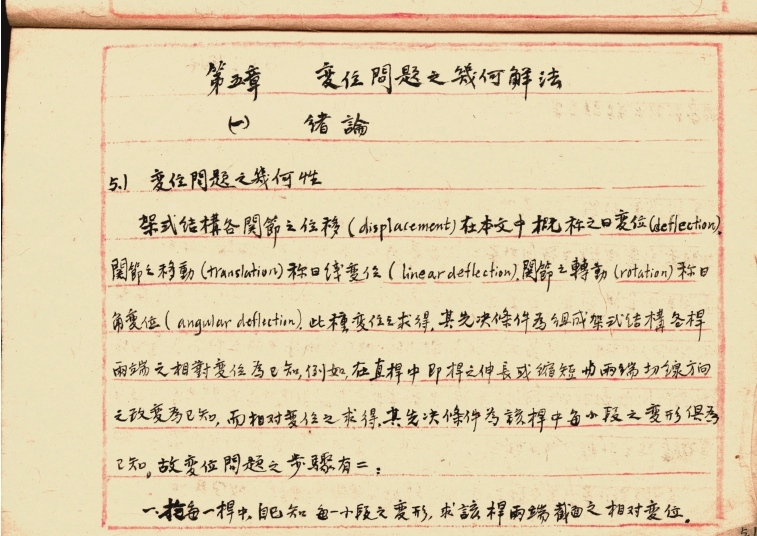 第五章 变位問題之幾何解法
(一) 绪論
5.1 变位問題之幾何性
架式结構各関節之位移(displacement)在本文中概称之曰变位(deflection),
関節之移動(translation)称曰线变位(linear deflection),関節之轉動(rotation)称曰
角变位(angular deflection). 此種变位之求得,其先决條件為组成架式结構各桿
两端之相對变位為已知,例如,在直桿中即桿之伸長或缩短 两端切線方向
之改变為已知,而相对变位之求得,其先决條件為該桿中每小段之变形俱為
已知,故变位問題之步驟有二:
一.在每一桿中,自已知每一小段之变形,求該桿两端截面之相对变位.
5.1